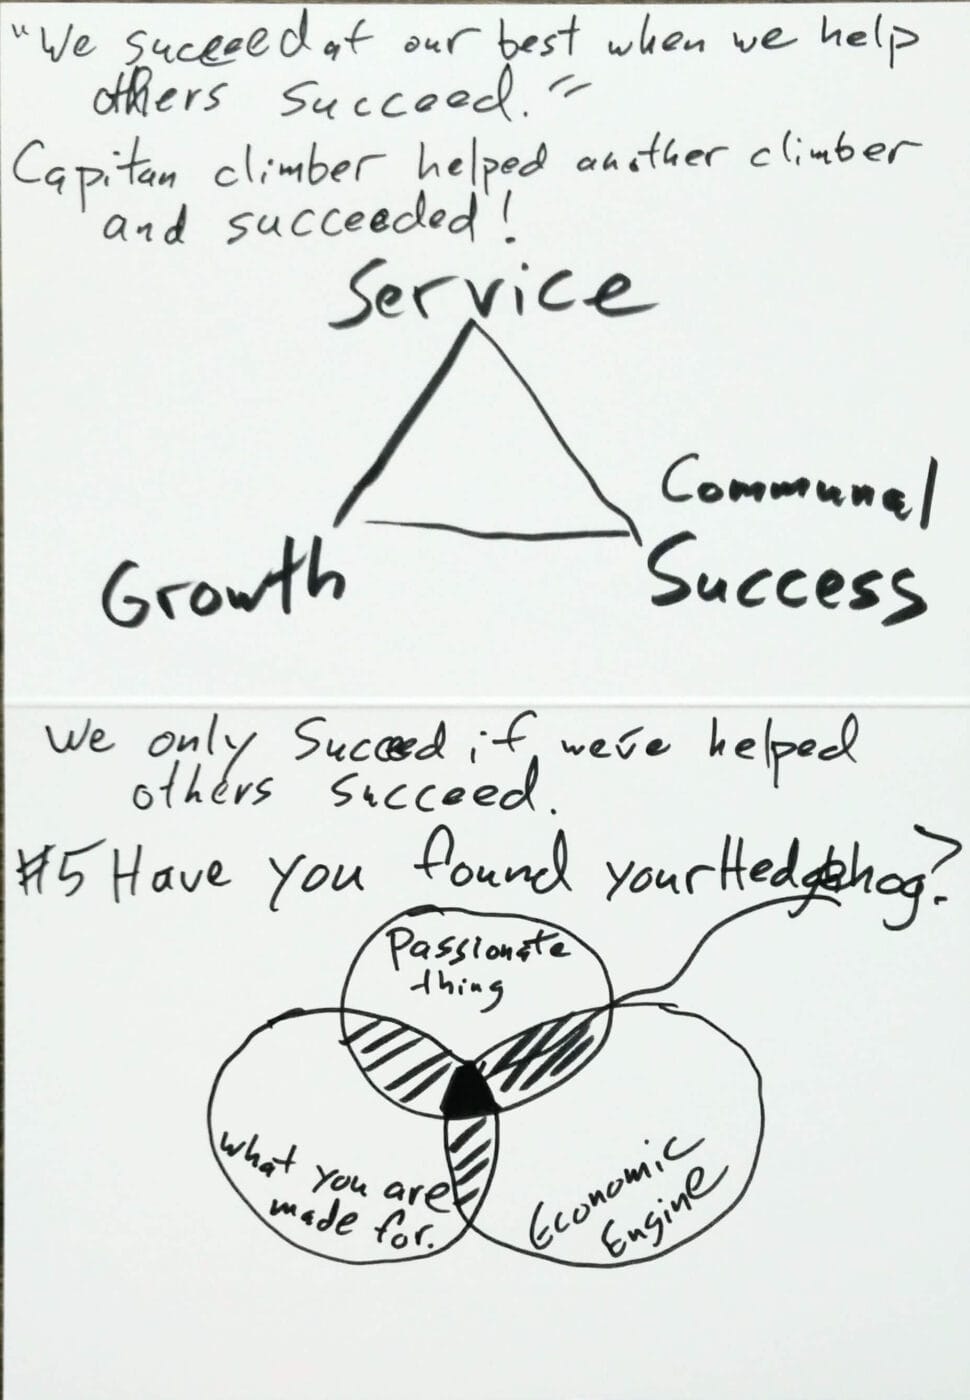 "We succeed at our best when we help
others succeed."
Capitan climber helped another climber
and succeeded!
Service
Communal
Growth
Success
We only succeed if we've helped
others succeed.
#5 Have you found your Hedgehog?
Passionate
thing
what you are
made for.
Economic
Engine